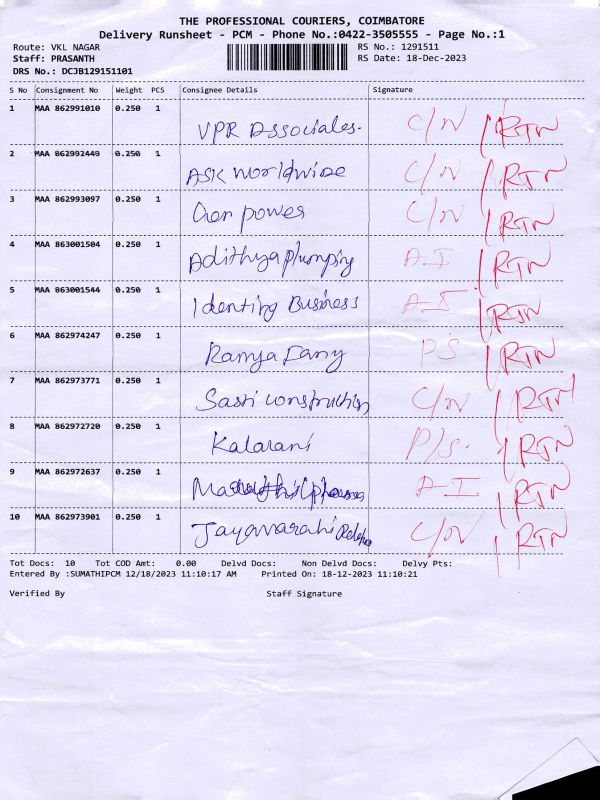 THE PROFESSIONAL COURIERS, COIMBATORE
Delivery Runsheet - PCM - Phone No.:0422-3505555 - Page No.:1
Route: VKL NAGAR RS No.: 1291511
Staff: PRASANTH RS Date: 18-Dec-2023
DRS No.: DCJB129151101
S No Consignment No Weight PCS Consignee Details Signature
1 MAA 862991010 0.250 1 VPR Associates. C/N /RTN
2 MAA 862992449 0.250 1 ASK Worldwide C/N /RTN
3 MAA 862993097 0.250 1 power C/N /RTN
4 MAA 863001504 0.250 1 Adithya plumping A-I /RTN
5 MAA 863001544 0.250 1 Identing Business A-I /RTN
6 MAA 862974247 0.250 1 Ramya P/S /RTN
7 MAA 862973771 0.250 1 Sasti construction C/N /RTN
8 MAA 862972720 0.250 1 Kalarani P/S. /RTN
9 MAA 862972637 0.250 1 A-I /RTN
10 MAA 862973901 0.250 1 Jayavarahi C/N /RTN
Tot Docs: 10 Tot COD Amt: 0.00 Delvd Docs: Non Delvd Docs: Delvy Pts:
Entered By :SUMATHIPCM 12/18/2023 11:10:17 AM Printed On: 18-12-2023 11:10:21
Verified By Staff Signature